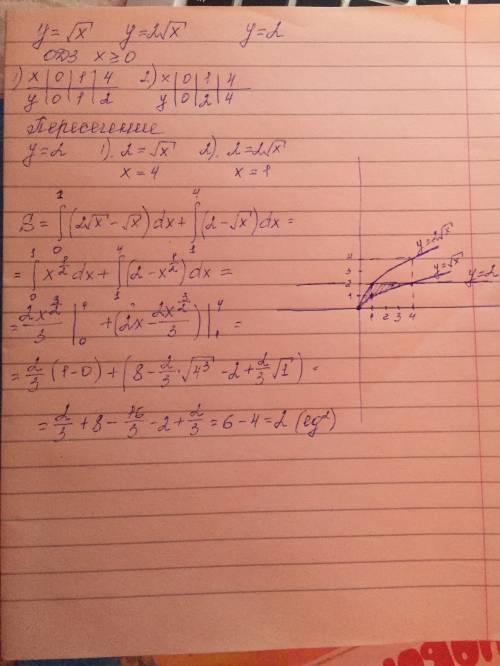 y=√x y=2√x y=2
ОДЗ x≥0
1) x | 0 | 1 | 4 2) x | 0 | 1 | 4
y | 0 | 1 | 2 y | 0 | 2 | 4
Пересечение
y=2 1). 2=√x 2). 2=2√x
x=4 x=1
S = ∫₀¹ (2√x - √x) dx + ∫₁⁴ (2-√x) dx =
= ∫₀¹ x^(1/2) dx + ∫₁⁴ (2 - x^(1/2)) dx =
= 2x^(3/2)/3 |₀¹ + (2x - 2x^(3/2)/3) |₁⁴ =
= 2/3 (1-0) + (8 - 2/3·√4³ - 2 + 2/3 √1) =
= 2/3 + 8 - 16/3 - 2 + 2/3 = 6-4=2 (ед²)
y=2√x
y=√x
y=2
4
3
2
1
1 2 3 4